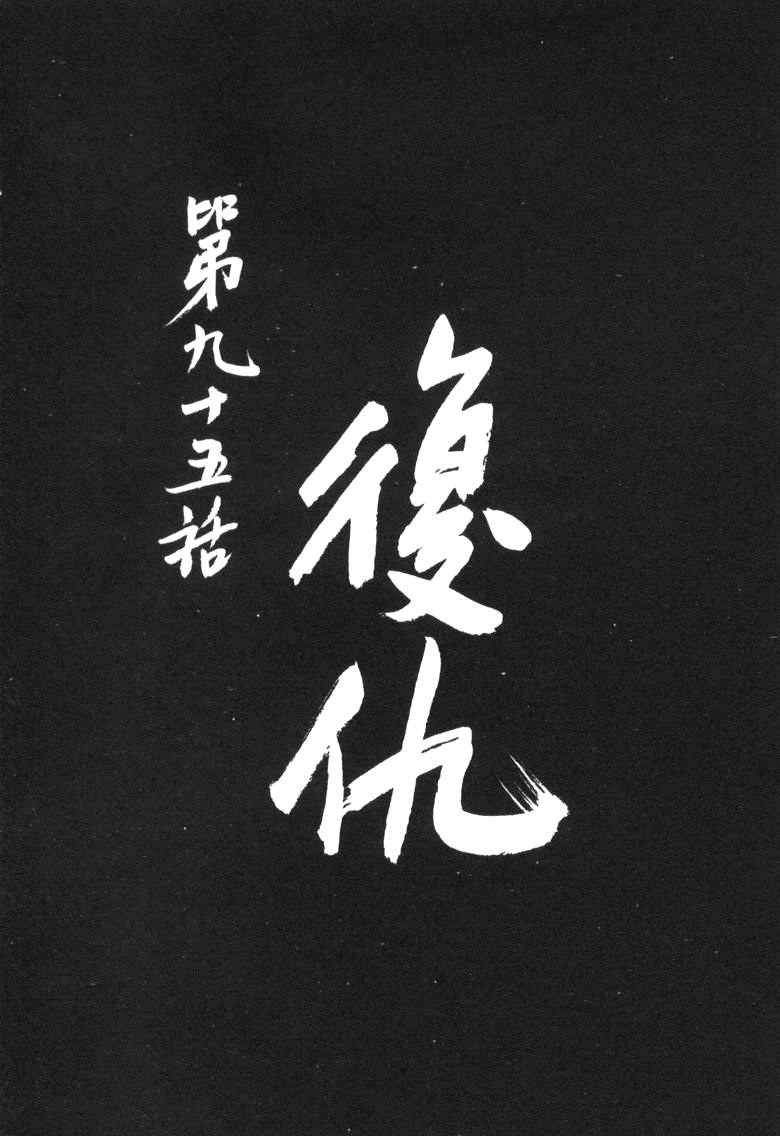 復仇
第九十五話